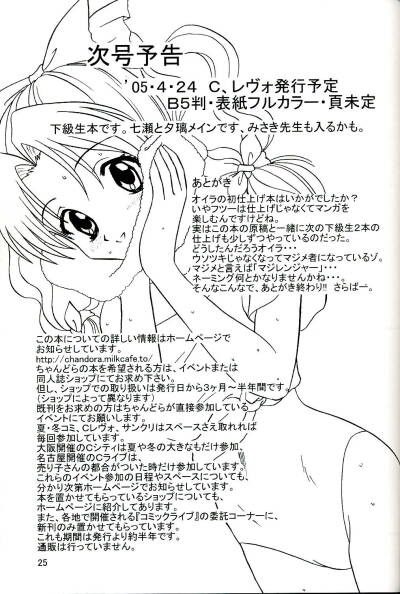 次号予告
'05・4・24 C、レヴォ発行予定
B5判・表紙フルカラー・頁未定
下級生本です。七瀬と夕璃メインです、みさき先生も入るかも。
あとがき
オイラの初仕上げ本はいかがでしたか?
いやフツーは仕上げじゃなくてマンガを
楽しむんですけどね。
実はこの本の原稿と一緒に次の下級生2本の
仕上げも少しずつやっているのだった。
どうしたんだろうオイラ・・・
ウソツキじゃなくなってマジメ者になっているゾ。
マジメと言えば「マジレンジャー」・・・
ネーミング何とかなりませんかねぇ・・・。
そんなこんなで、あとがき終わり!! さらばー。
この本についての詳しい情報はホームページで
お知らせしています。
http://chandora.milkcafe.to/
ちゃんどらの本を希望される方は、イベントまたは
同人誌ショップにてお求め下さい。
但し、ショップでの取り扱いは発行日から3ヶ月~半年間です。
(ショップによって異なります)
既刊をお求めの方はちゃんどらが直接参加している
イベントにてお願します。
夏・冬コミ、Cレヴォ、サンクリはスペースさえ取れれば
毎回参加しています。
大阪開催のCシティは夏や冬の大きなもだけ参加、
名古屋開催のCライブは、
売り子さんの都合がついた時だけ参加しています。
これらのイベント参加の日程やスペースについても、
分かり次第ホームページでお知らせしています。
本を置かせてもらっているショップについても、
ホームページに紹介してあります。
また、各地で開催される『コミックライブ』の委託コーナーに、
新刊のみ置かせてもらっています。
これも期間は発行より約半年です。
通販は行っていません。
25